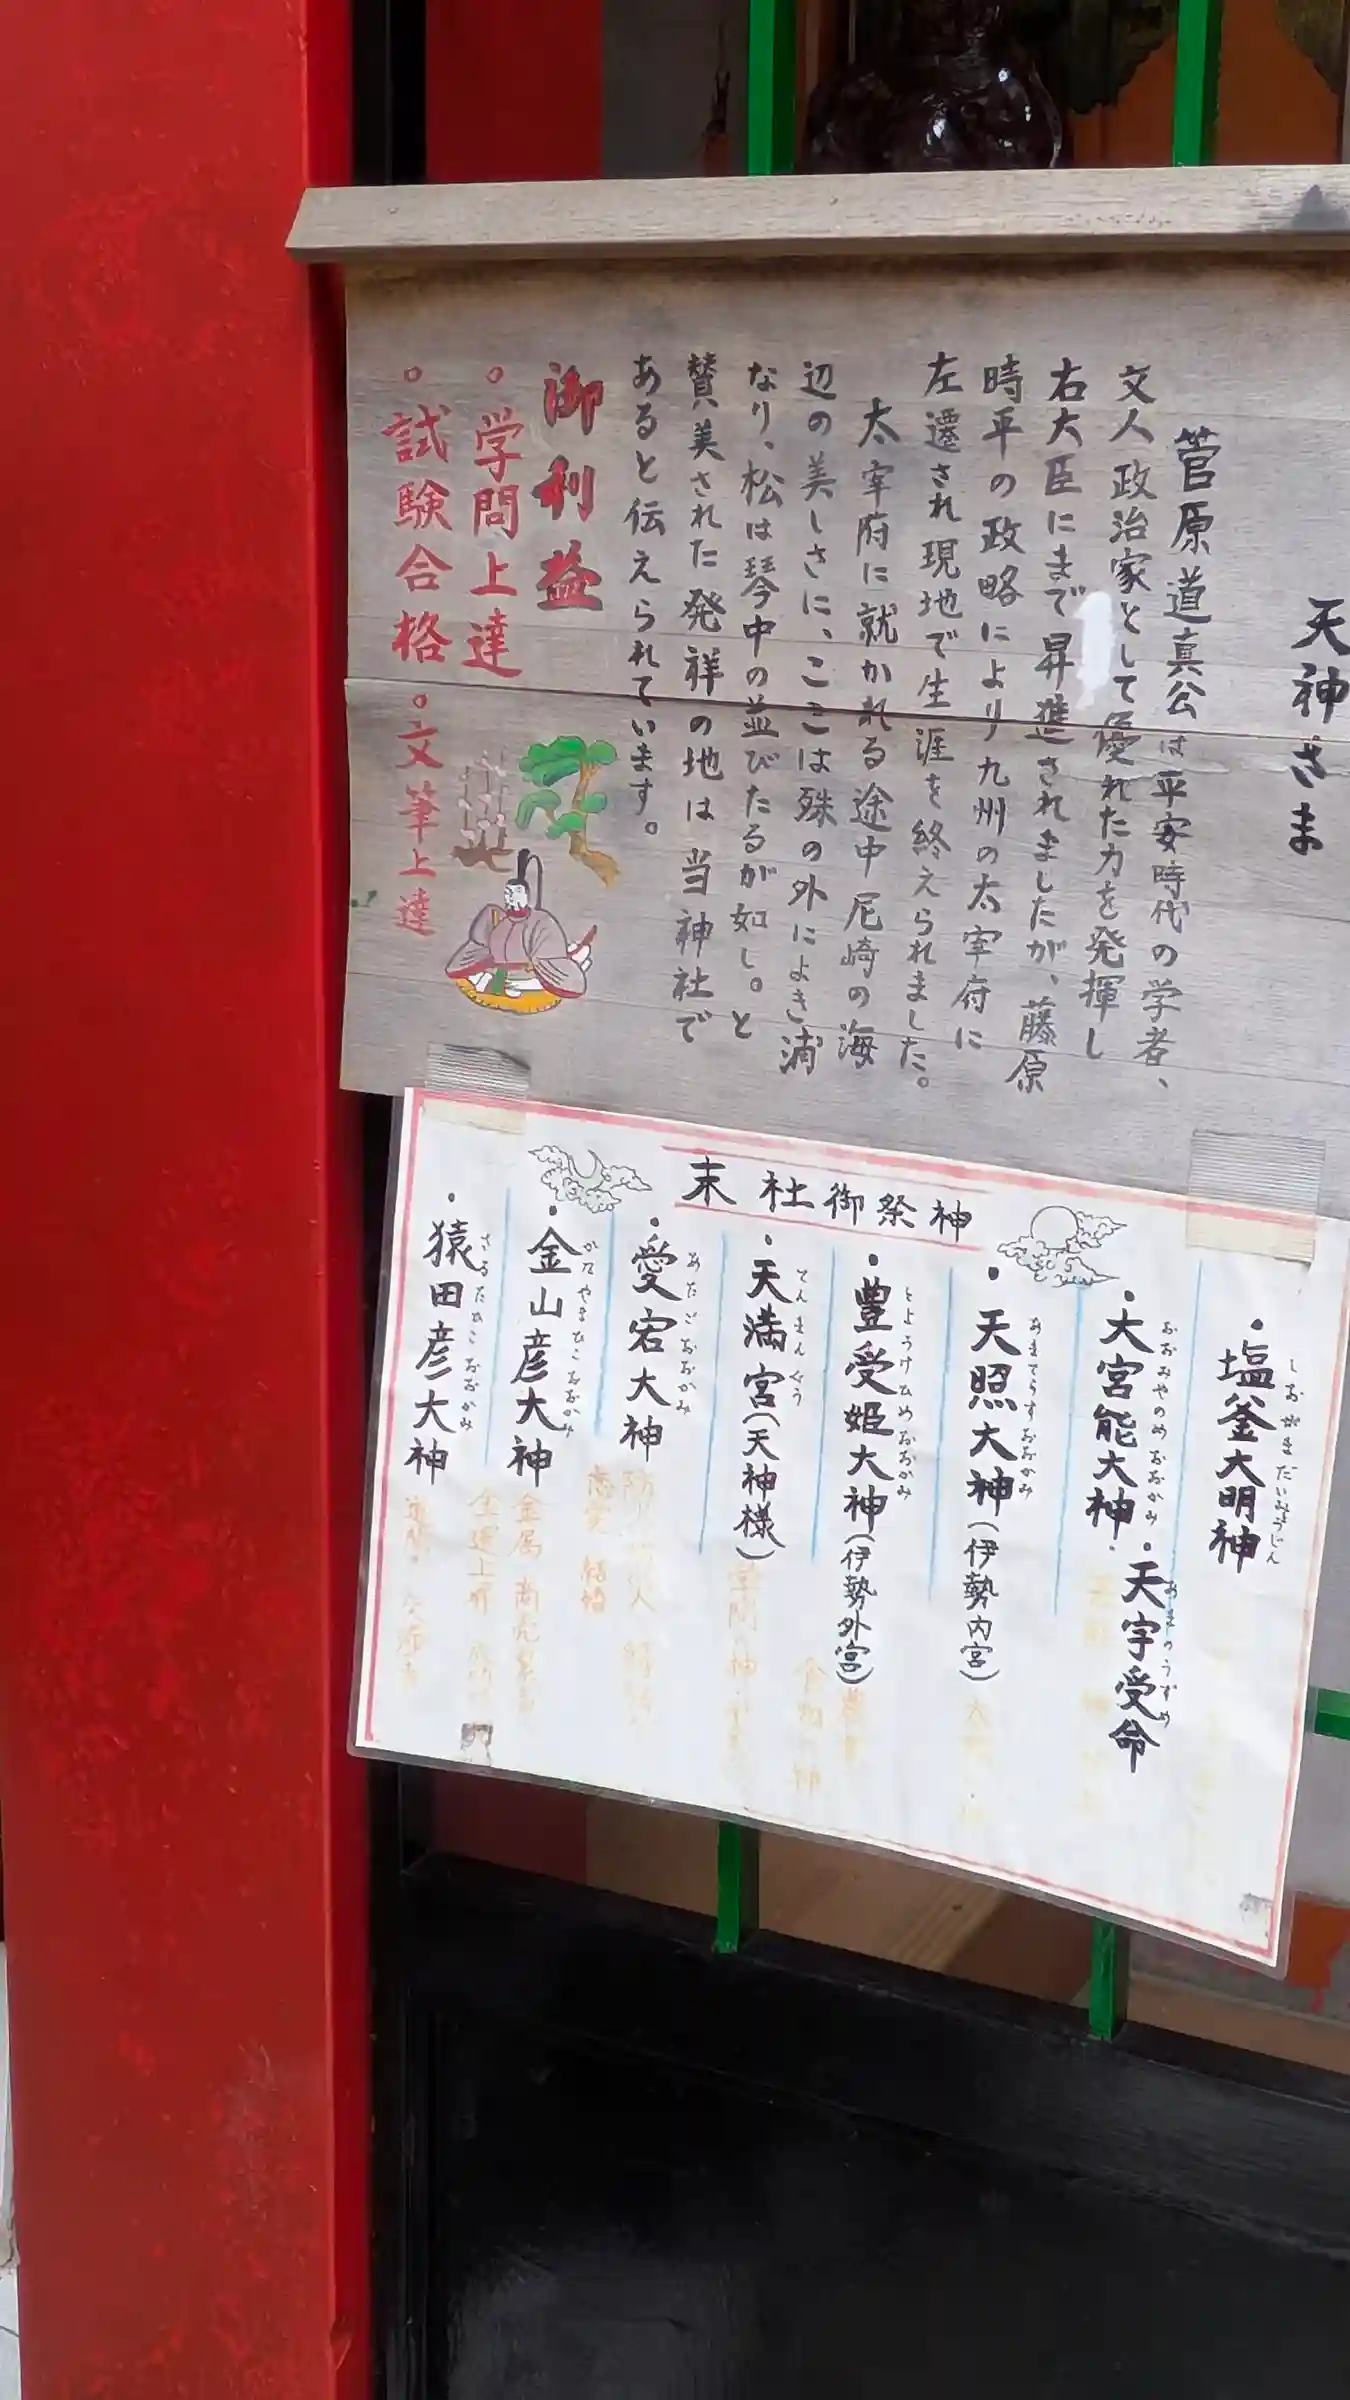 天神さま
菅原道真公は平安時代の学者、
文人政治家として優れた力を発揮し
右大臣にまで昇進されましたが、藤原
時平の政略により九州の太宰府に
左遷され現地で生涯を終えられました。
太宰府に就かれる途中尼崎の海
辺の美しさに、ここは殊の外によき浦
なり、松は琴中の並びたるが如し。と
賛美された発祥の地は当神社で
あると伝えられています。
御利益
。学問上達
。試験合格。文筆上達
末社御祭神
・塩釜大明神
しおがまだいみょうじん
・大宮能大神・天宇受命
おおみやのめおおかみ
あめのうずめ
・天照大神(伊勢内宮)
あまてらすおおかみ
・豊受姫大神(伊勢外宮)
とようけひめおおかみ
・天満宮(天神様)
てんまんぐう
・愛宕大神
あたごおおかみ
・金山彦大神
かなやまひこおおかみ
・猿田彦大神
さるたひこおおかみ
学問
食物 神
結婚
金属 商売
金運上昇